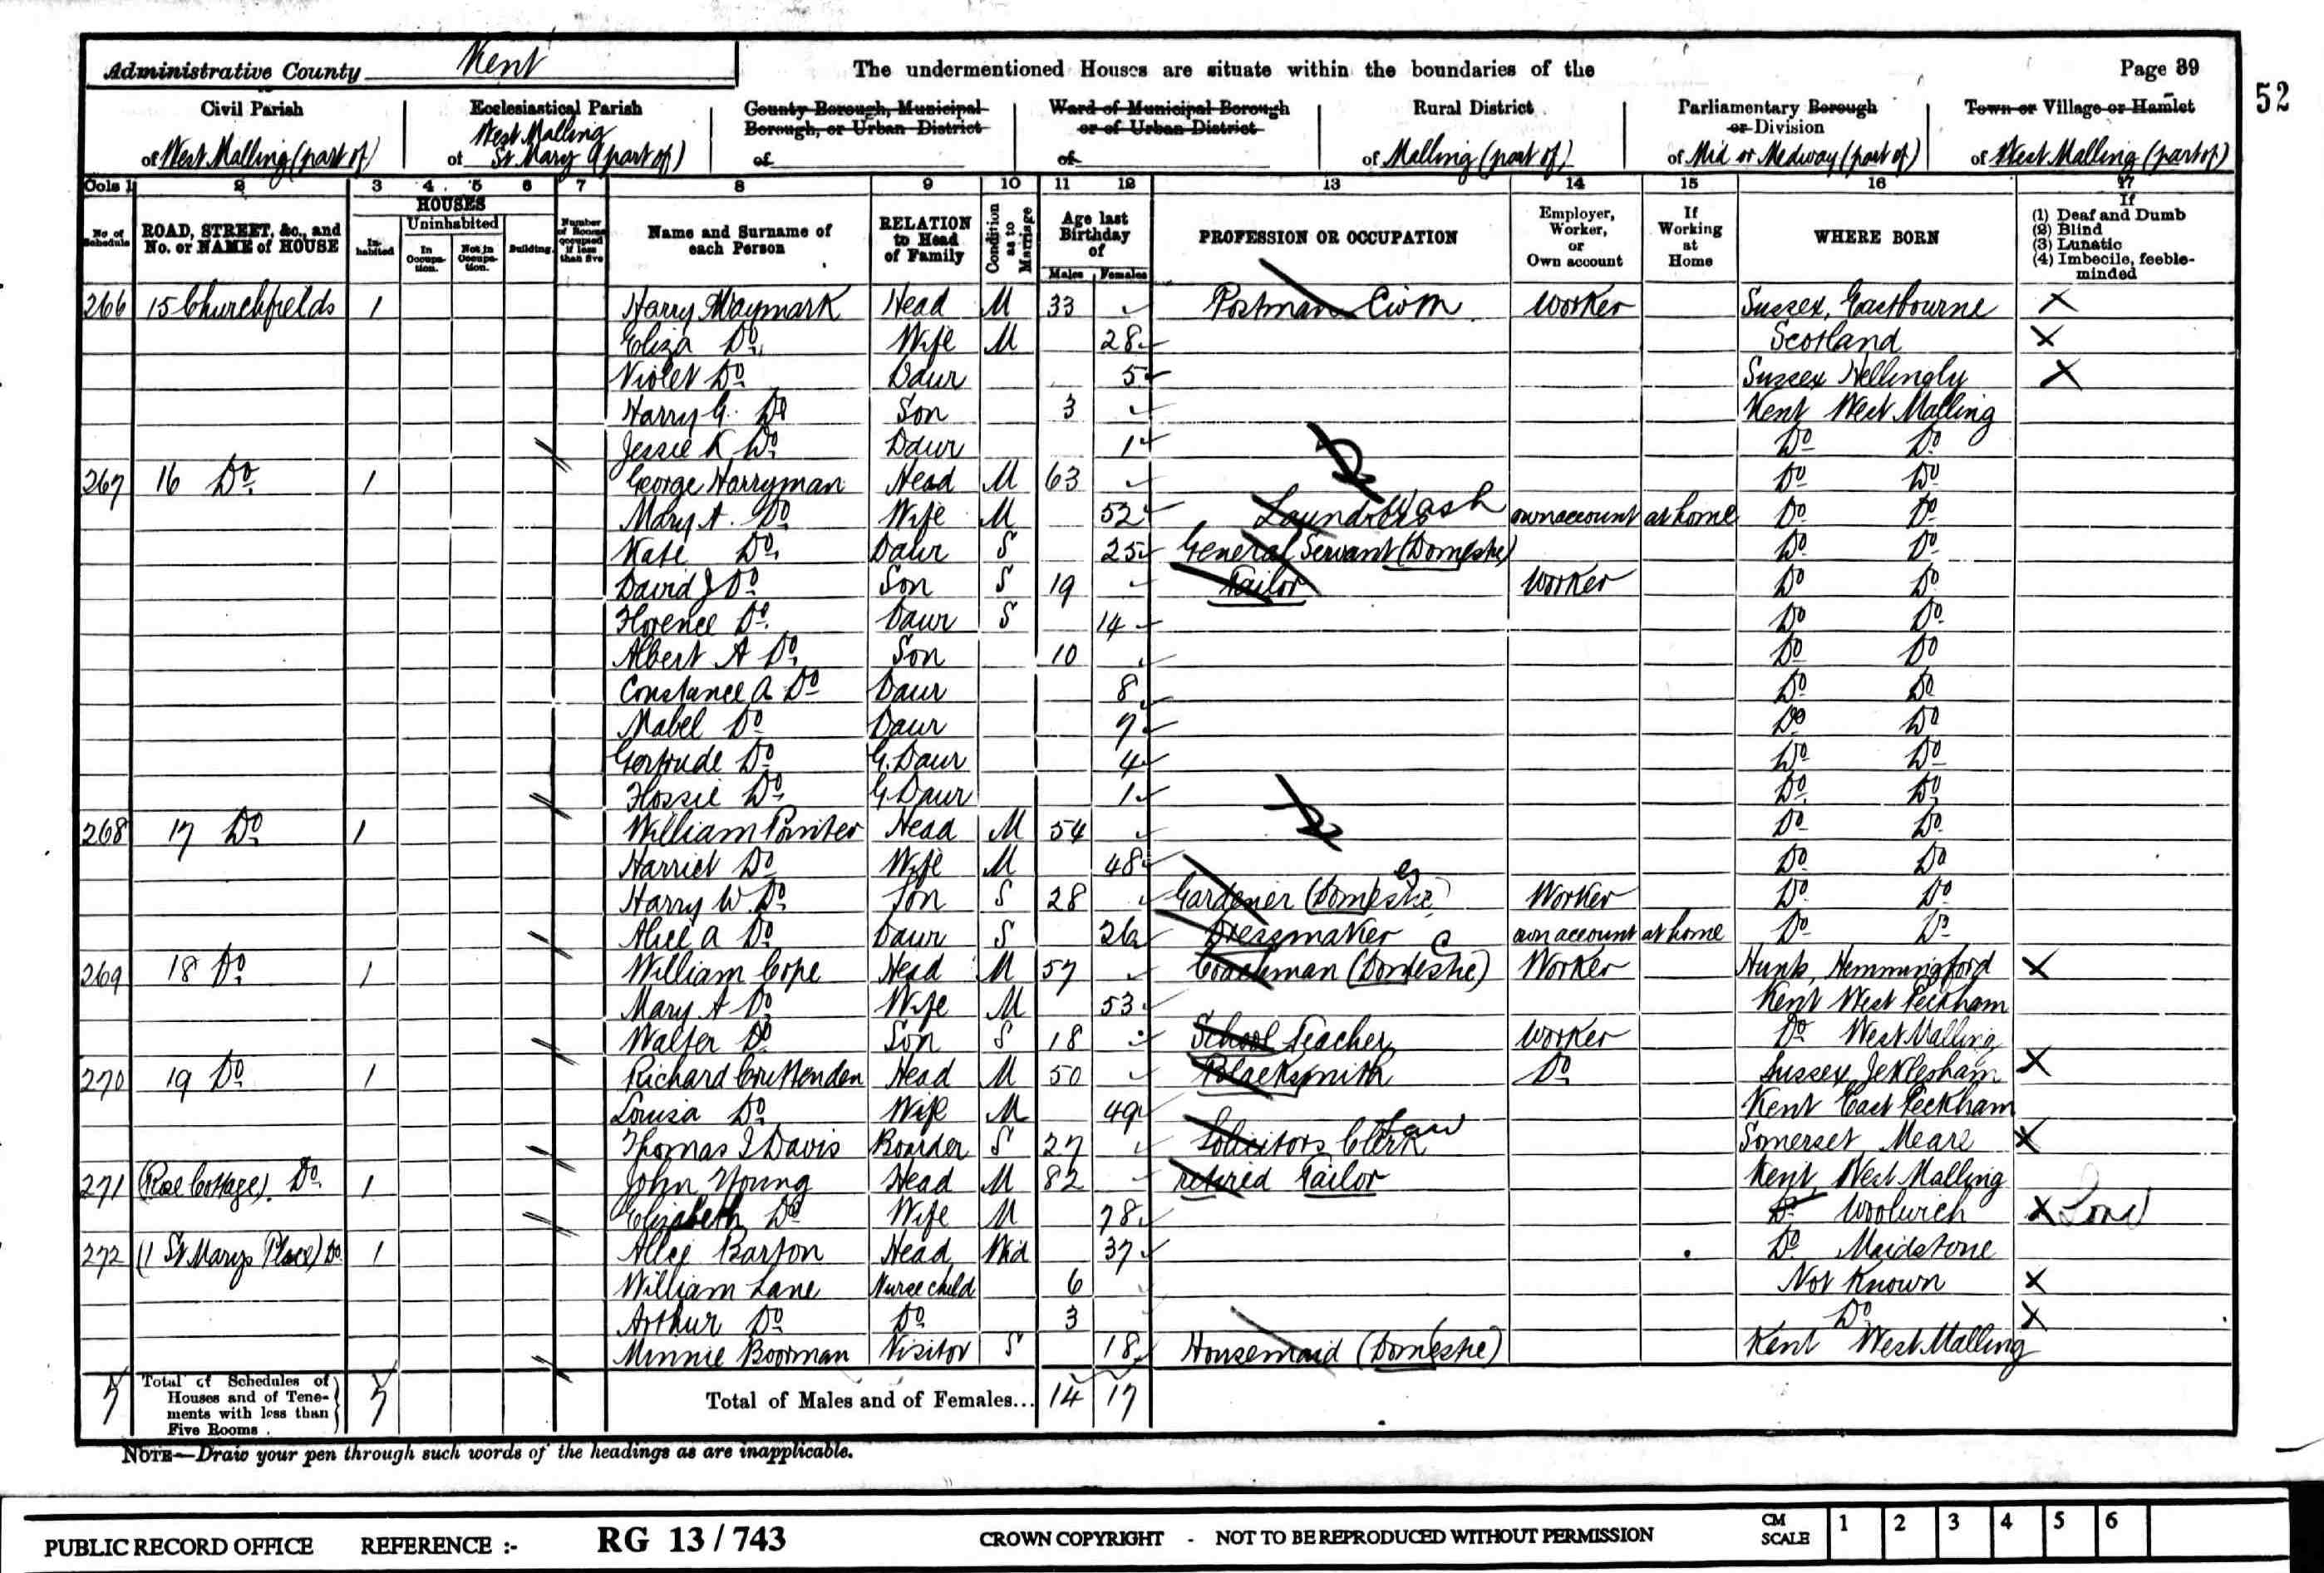 Administrative County Kent The undermentioned Houses are situate within the boundaries of the Page 39
52
Civil Parish Ecclesiastical Parish County Borough, Municipal Borough, or Urban District Ward of Municipal Borough or of Urban District Rural District Parliamentary Borough or Division Town or Village or Hamlet
of West Malling (part of) of West Malling St Mary (part of) of of of Malling (part of) of Mid or Medway (part of) of West Malling (part of)
Cols 1 2 3 4 5 6 7 8 9 10 11 12 13 14 15 16 17
No of Schedule ROAD, STREET, &c., and No. or NAME of HOUSE HOUSES Inhabited Uninhabited In Occupation. Not in Occupation. Building. Number of Rooms occupied if less than five Name and Surname of each Person RELATION to Head of Family Condition as to Marriage Age last Birthday of Males Females PROFESSION OR OCCUPATION Employer, Worker, or Own account If Working at Home WHERE BORN If (1) Deaf and Dumb (2) Blind (3) Lunatic (4) Imbecile, feeble-minded
266 15 Churchfields 1 Harry Waymark Head M 33 Postman Worker Sussex, Eastbourne X
Eliza Do Wife M 28 Scotland X
Violet Do Daur 5 Sussex Hellingly X
Harry G. Do Son 3 Kent West Malling
Jessie K Do Daur 1 Do Do
267 16 Do 1 George Harryman Head M 63 Do Do
Mary A. Do Wife M 52 Laundress Wash own account at home Do Do
Kate Do Daur S 25 General Servant (Domestic) Do Do
David J Do Son S 19 Tailor Worker Do Do
Florence Do Daur S 14 Do Do
Albert A Do Son 10 Do Do
Constance A Do Daur 8 Do Do
Mabel Do Daur 7 Do Do
Gertrude Do G. Daur 4 Do Do
Flossie Do G Daur 1 Do Do
268 17 Do 1 William Pointer Head M 54 Do Do
Harriet Do Wife M 48 Do Do
Harry W Do Son S 28 Gardener (Domestic) Worker Do Do
Alice A Do Daur S 26 Dressmaker own account at home Do Do
269 18 Do 1 William Cope Head M 57 Coachman (Domestic) Worker Hunts, Hemmingford X
Mary A Do Wife M 53 Kent West Peckham
Walter Do Son S 18 School Teacher Worker Do West Malling
270 19 Do 1 Richard Crittenden Head M 50 Blacksmith Do Sussex Icklesham X
Louisa Do Wife M 49 Kent East Peckham
Thomas I Davis Boarder S 27 Solicitors Clerk Law Somerset Meare X
271 (Rose Cottage). Do 1 John Young Head M 82 retired Tailor Kent West Malling
Elizabeth Do Wife M 78 Do Woolwich X Lond
272 (1 St Marys Place) Do 1 Alice Barton Head Wid 37 Do Maidstone
William Lane Nurse child 6 Not Known X
Arthur Do Do 3 Do X
Minnie Boorman Visitor S 18 Housemaid (Domestic) Kent West Malling
7 Total of Schedules of Houses and of Tenements with less than Five Rooms 7 Total of Males and of Females... 14 17
NOTE—Draw your pen through such words of the headings as are inapplicable.
PUBLIC RECORD OFFICE REFERENCE :- RG 13 / 743 CROWN COPYRIGHT - NOT TO BE REPRODUCED WITHOUT PERMISSION CM SCALE 1 2 3 4 5 6